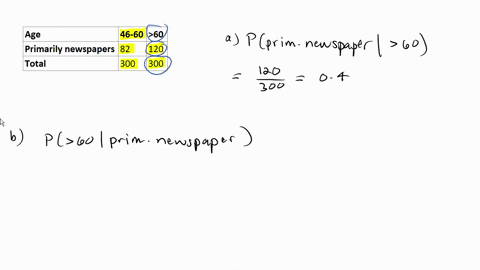 Age 46-60 >60
Primarily newspapers 82 120
Total 300 300
a) P(prim. newspaper | >60)
= 120/300 = 0.4
b) P(>60 | prim. newspaper)